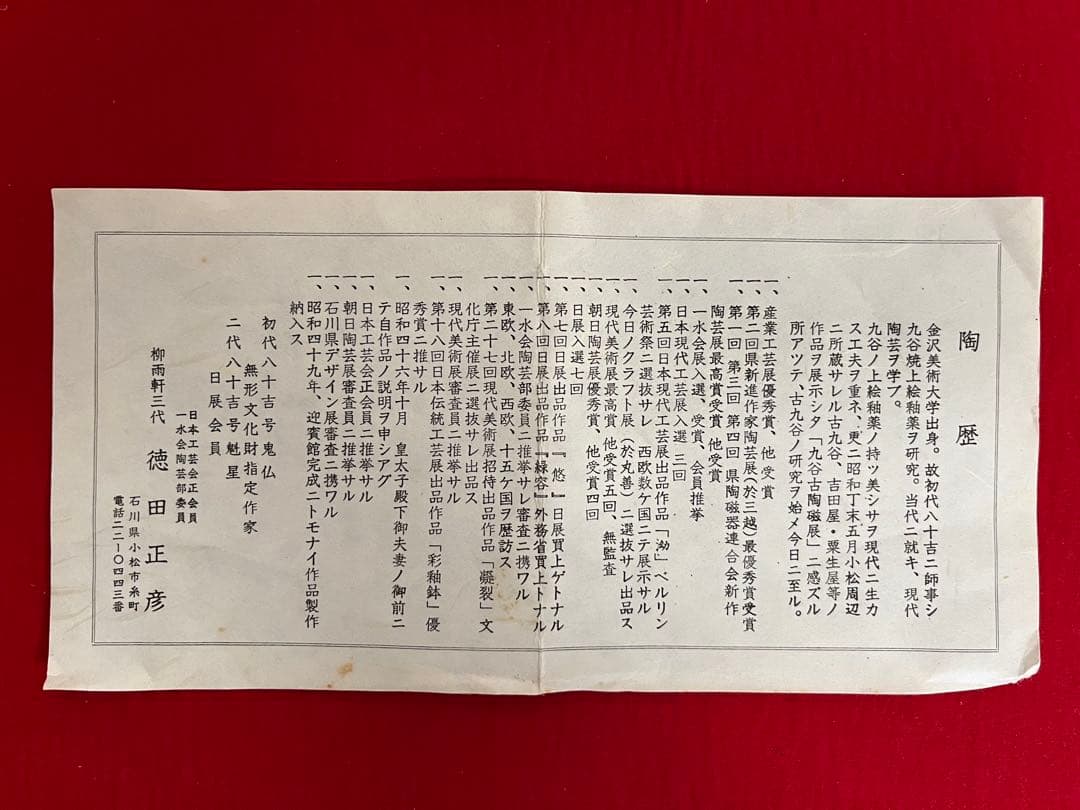 陶歴
金沢美術大学出身。故初代八十吉ニ師事シ
九谷焼上絵釉薬ヲ研究。当代ニ就キ、現代
陶芸ヲ学ブ。
九谷ノ上絵釉薬ノ持ツ美シサヲ現代ニ生カ
ス工夫ヲ重ネ、更ニ昭和丁末五月小松周辺
ニ所蔵サレル古九谷、吉田屋・粟生屋等ノ
作品ヲ展示シタ「九谷古陶磁展」ニ感ズル
所アツテ、古九谷ノ研究ヲ始メ今日ニ至ル。
一、産業工芸展優秀賞、他受賞
一、第二回県新進作家陶芸展(於三越)最優秀賞受賞
一、第一回 第三回 第四回 県陶磁器連合会新作
陶芸展最高賞受賞 他受賞
一、一水会展入選、受賞、会員推挙
一、日本現代工芸展入選 三回
一、第五回日本現代工芸展出品作品「泑」ベルリン
芸術祭ニ選抜サレ 西欧数ケ国ニテ展示サル
一、今日ノクラフト展(於丸善)ニ選抜サレ出品ス
一、現代美術展最高賞 他受賞五回、無監査
一、朝日陶芸展優秀賞、他受賞四回
一、日展入選七回
一、第七回日展出品作品『悠』日展買上ゲトナル
一、第八回日展出品作品『緑容』外務省買上トナル
一、一水会陶芸部委員ニ推挙サレ審査ニ携ワル
一、東欧、北欧、西欧、十五ケ国ヲ歴訪ス
一、第二十七回現代美術展招待出品作品「凝裂」文
化庁主催展ニ選抜サレ出品ス
一、現代美術展審査員ニ推挙サル
一、第十八回日本伝統工芸展出品作品「彩釉鉢」優
秀賞ニ推サル
一、昭和四十六年十月 皇太子殿下御夫妻ノ御前ニ
テ自作品ノ説明ヲ申シアグ
一、日本工芸会正会員ニ推挙サル
一、朝日陶芸展審査員ニ推挙サル
一、石川県デザイン展審査ニ携ワル
一、昭和四十九年、迎賓館完成ニトモナイ作品製作
納入ス
初代八十吉号鬼仏
無形文化財指定作家
二代八十吉号魁星
日展会員
日本工芸会正会員
一水会陶芸部委員
柳雨軒三代 徳田正彦
石川県小松市糸町
電話二二ー〇四四三番